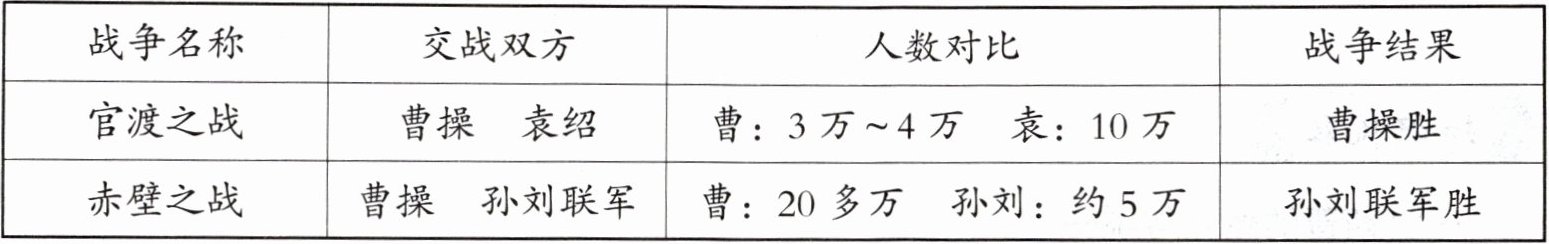 战争名称 交战双方 人数对比 战争结果
官渡之战 曹操 袁绍 曹：3万~4万 袁：10万 曹操胜
赤壁之战 曹操 孙刘联军 曹：20多万 孙刘：约5万 孙刘联军胜